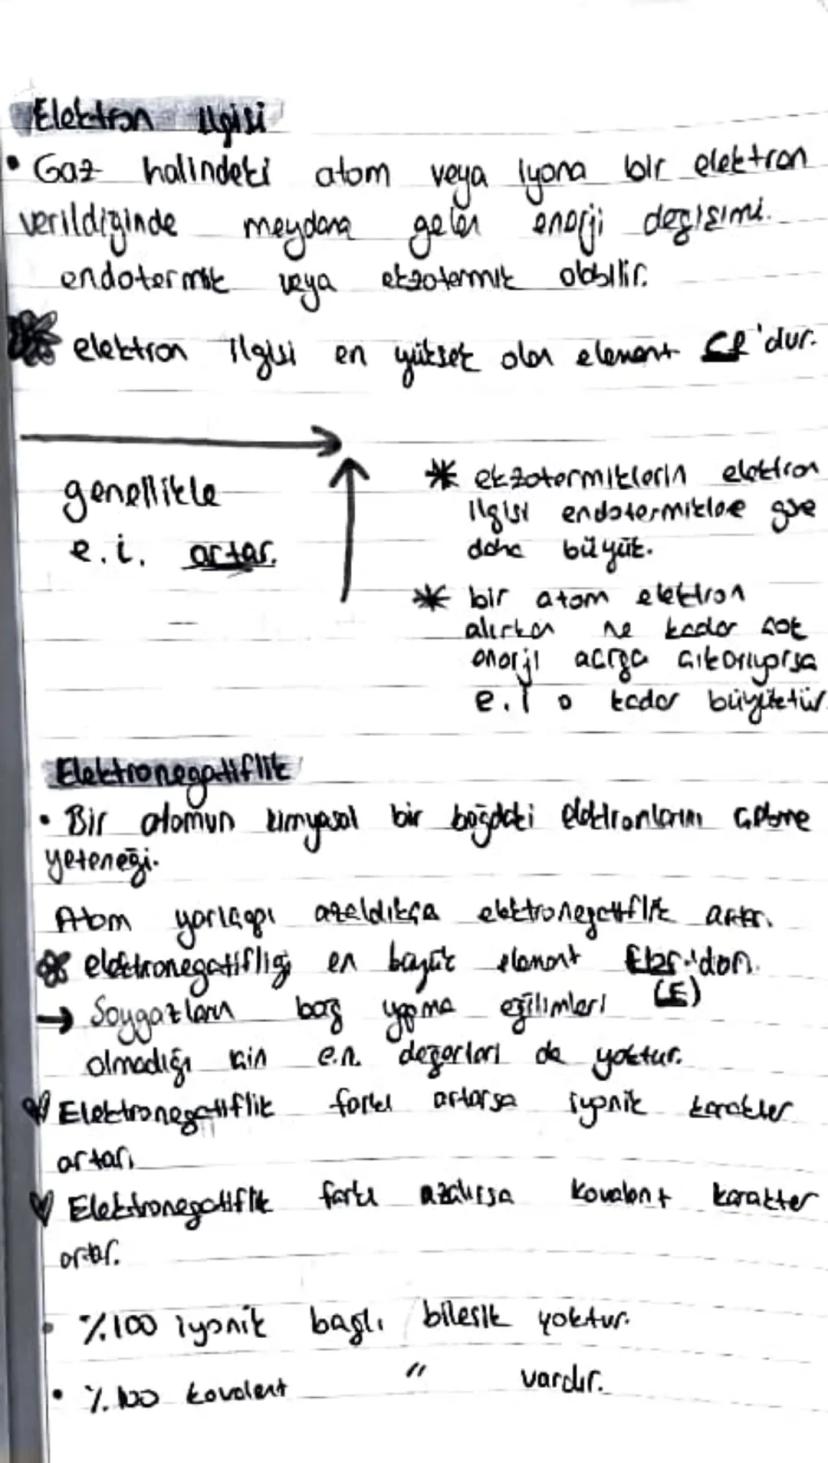 Elektron ilgisi
• Gaz halindeki atom veya iyona bir elektron
verildiğinde meydana gelen enerji değişimi.
endotermik veya ekzotermik olabilir.
elektron ilgisi en yüksek olan element Cl'dur.
genellikle
e.i. artar.
* ekzotermiklerin elektron
ilgisi endotermiklere göre
daha büyük.
* bir atom elektron
alırken ne kadar çok
enerji açığa çıkarıyorsa
e.i o kadar büyüktür.
Elektronegatiflik
• Bir atomun kimyasal bir bağdaki elektronlarını çekme
yeteneği.
Atom yarıçapı azaldıkça elektronegatiflik artar.
elektronegatifliği en büyük element
(F)
→ Soygazların bağ yapma eğilimleri
olmadığı için e.n. değerleri de yoktur.
Elektronegatiflik farkı artarsa iyonik karakter
artar.
Elektronegatiflik farkı azalırsa kovalent karakter
artar.
• %100 iyonik bağlı bileşik yoktur.
• %100 kovalent " vardır.